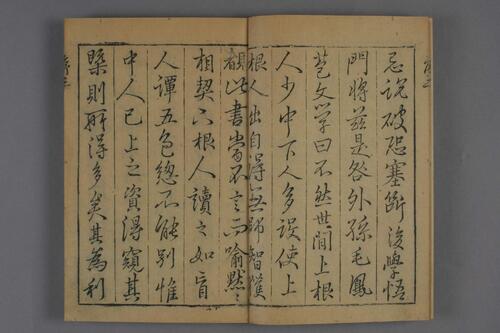 忌說破恐塞斷後學悟
門將茲是咎外孫毛鳳
苞文學曰不然世間上根
人少中下人多設使上
根人出自得無師智獲
覩此書當不言而喻默〻
相契下根人讀之如盲
人譚五色總不能別惟
中人已上之資得窺其
槩則所得多矣其為利